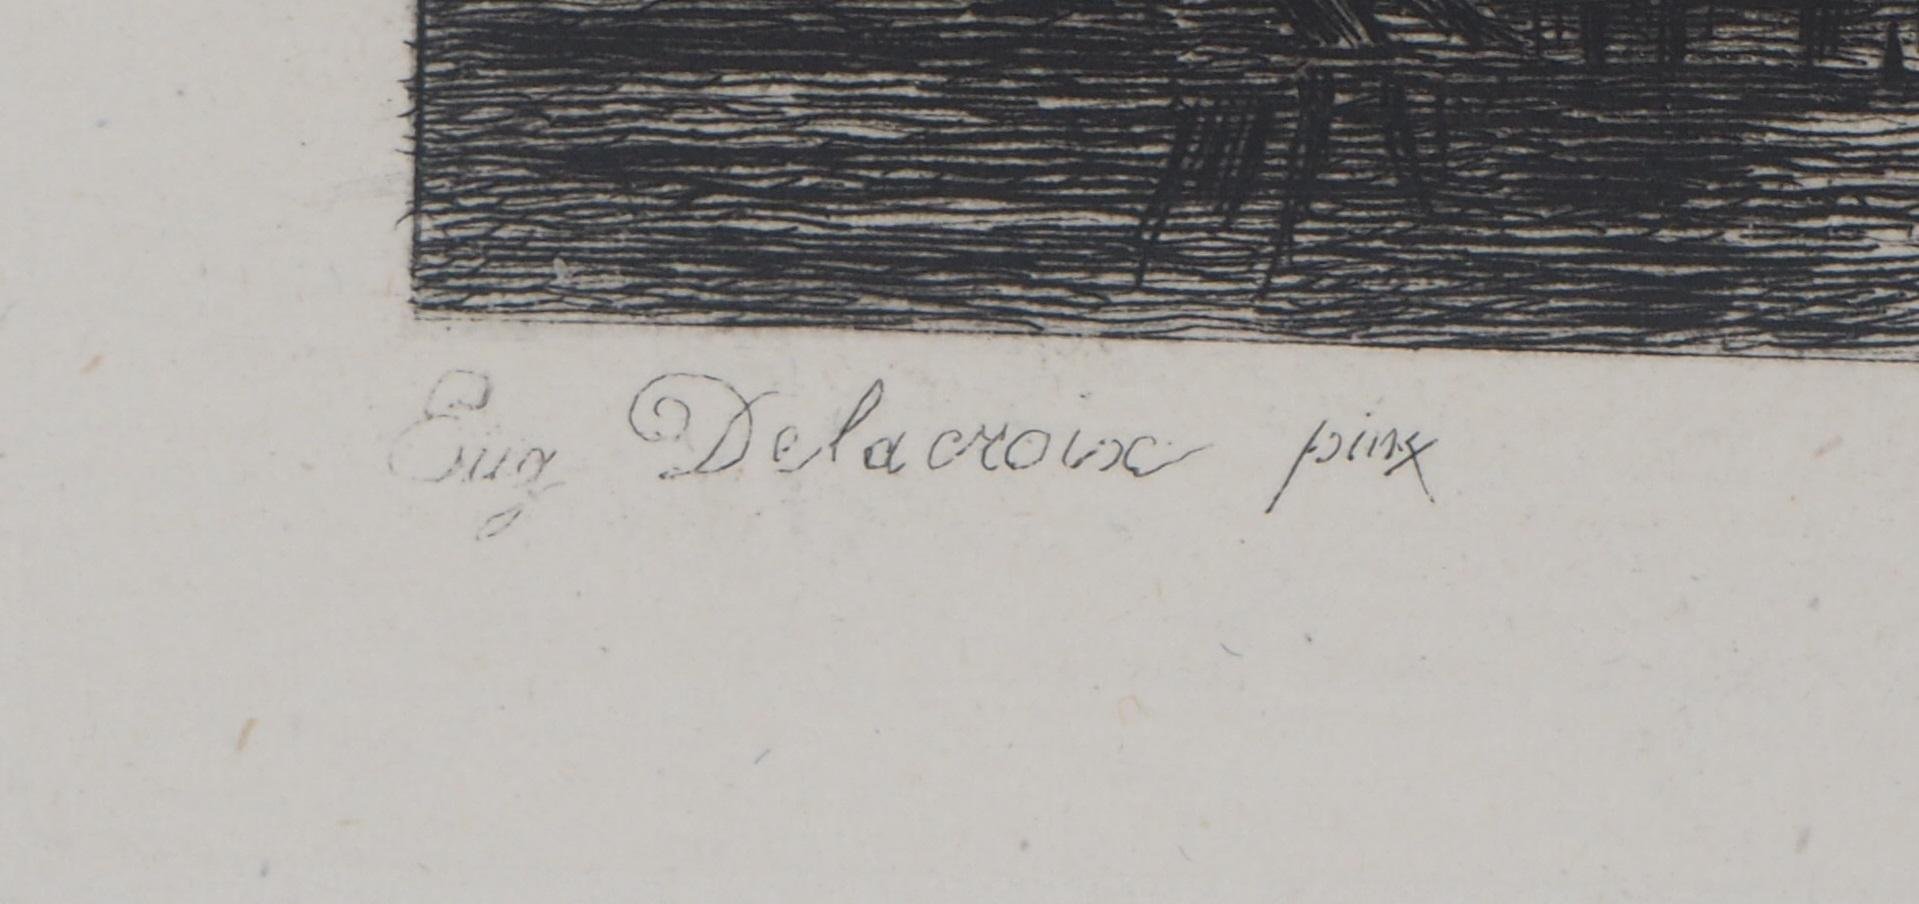 Eug Delacroix pinx